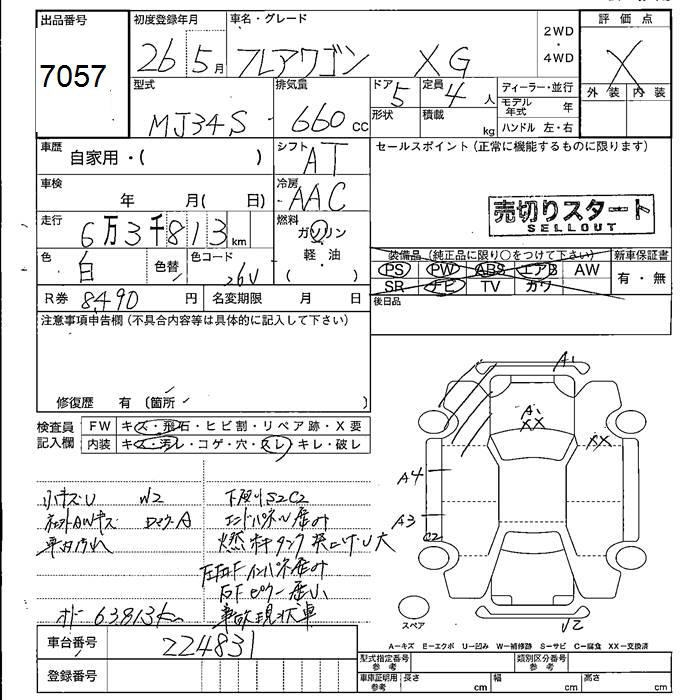 出品番号
7057
初度登録年月
26 5月
車名・グレード
フレアワゴン XG
2WD
・
4WD
評価点
X
外装 内装
型式
MJ34S
排気量
660 cc
ドア 5
形状
定員 4 人
積載 kg
ディーラー・並行
モデル年式 年
ハンドル 左・右
車歴
自家用・( )
シフト
AT
セールスポイント(正常に機能するものに限ります)
車検
年 月( 日)
冷房
AAC
売切りスタート
SELLOUT
走行
6万3千813 km
燃料
ガソリン
軽・油
( )
色
白
色替
色コード
26V
装備品(純正品に限り○をつけて下さい)
PS PW ABS エアB AW
SR ナビ TV カワ
新車保証書
有・無
後日品
R券 8490 円
名変期限 月 日
注意事項申告欄(不具合内容等は具体的に記入して下さい)
修復歴 有(箇所 )
検査員記入欄
FW キズ・飛石・ヒビ割・リペア跡・X要
内装 キズ・汚レ・コゲ・穴・スレ・キレ・破レ
小キズU W2
下廻りS2C2
エンドパネル
燃料タンク 突上げU大
左右Fインパネ
右Fピラー
事故現状車
オドー 63,813km
A1
A1
XX
XX
A4
A3
C2
U2
スペア
A-キズ E-エクボ U-凹み W-補修跡 S-サビ C-腐食 XX-交換済
車台番号
224831
登録番号
型式指定番号
参考
類別区分番号
参考
車庫証明用
参考
長さ cm
幅 cm
高さ cm